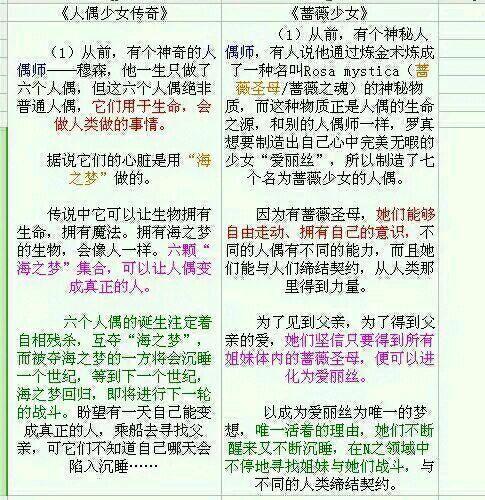 《人偶少女传奇》
（1）从前，有个神奇的人
偶师——穆森，他一生只做了
六个人偶，但这六个人偶绝非
普通人偶，它们用于生命，会
做人类做的事情。
据说它们的心脏是用“海
之梦”做的。
传说中它可以让生物拥有
生命，拥有魔法。拥有海之梦
的生物，会像人一样。六颗“
海之梦”集合，可以让人偶变
成真正的人。
六个人偶的诞生注定着
自相残杀，互夺“海之梦”，
而被夺海之梦的一方将会沉睡
一个世纪，等到下一个世纪，
海之梦回归，即将进行下一轮
的战斗。盼望有一天自己能变
成真正的人，乘船去寻找父
亲，可它们不知道自己哪天会
陷入沉睡……
《蔷薇少女》
（1）从前，有个神秘人
偶师，有人说他通过炼金术炼成
了一种名叫Rosa mystica（蔷
薇圣母/蔷薇之魂）的神秘物
质，而这种物质正是人偶的生命
之源，和别的人偶师一样，罗真
想要制造出自己心中完美无暇的
少女“爱丽丝”，所以制造了七
个名为蔷薇少女的人偶。
因为有蔷薇圣母，她们能够
自由走动、拥有自己的意识，不
同的人偶有不同的能力，而且她
们能与人们缔结契约，从人类那
里得到力量。
为了见到父亲，为了得到父
亲的爱，她们坚信只要得到所有
姐妹体内的蔷薇圣母，便可以进
化为爱丽丝。
以成为爱丽丝为唯一的梦
想，唯一活着的理由，她们不断
醒来又不断沉睡，在N之领域中
不停地寻找姐妹与她们战斗，与
不同的人类缔结契约。